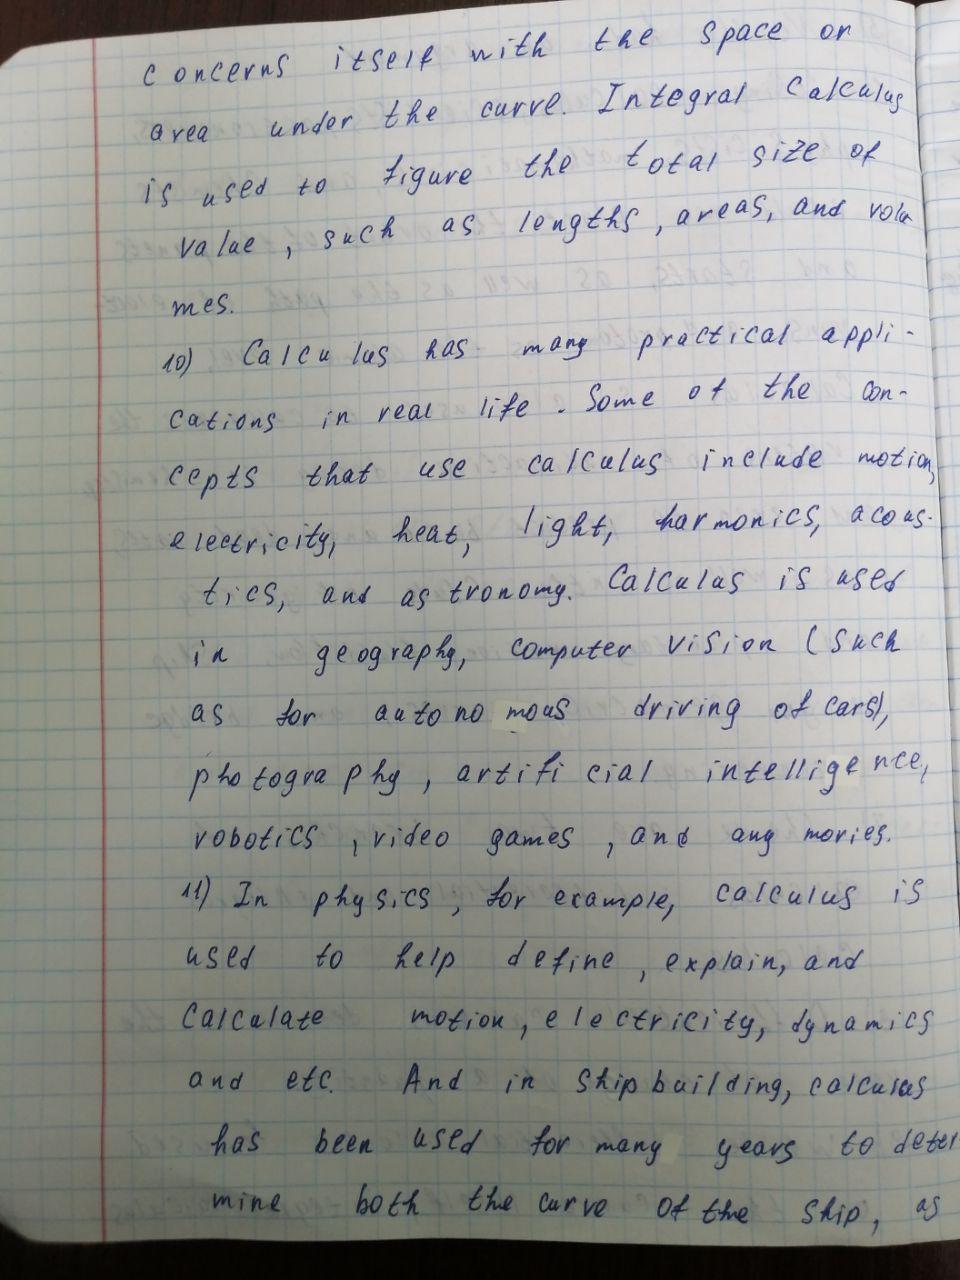 concerns itself with the space or
area under the curve. Integral Calculus
is used to figure the total size of
value, such as lengths, areas, and volu
mes.
10) Calculus has many practical appli-
cations in real life. Some of the con-
cepts that use calculus include motion,
electricity, heat, light, harmonics, acous-
tics, and astronomy. Calculus is used
in geography, computer vision (such
as for autonomous driving of cars),
photography, artificial intelligence,
robotics, video games, and any movies.
11) In physics, for example, calculus is
used to help define, explain, and
calculate motion, electricity, dynamics
and etc. And in ship building, calculus
has been used for many years to deter
mine both the curve of the ship, as